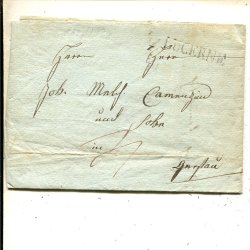 LUCERNE
Herrn Herrn
Joh. Melch. Camenzind
und Sohn
in
Gersau